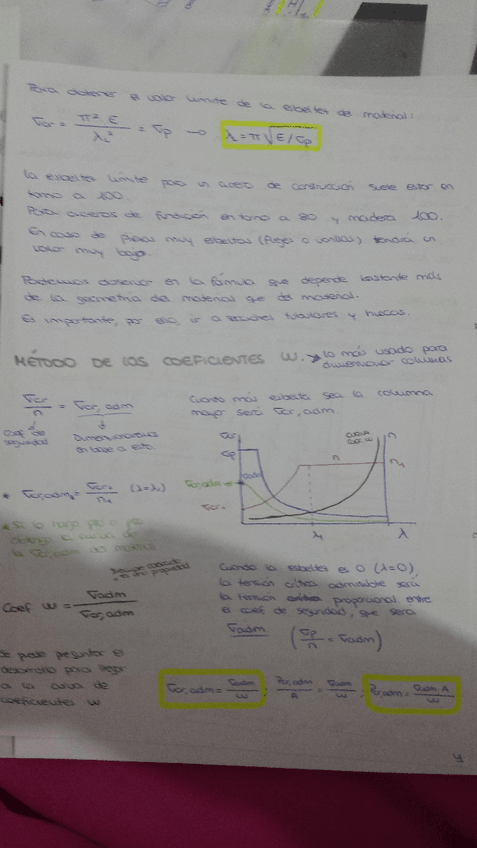 Para obtener el valor límite de la esbeltez del material:
σcr = π² E / λL² = σp → λ = π √E/σp
La esbeltez límite para un acero de construcción suele estar en
torno a 100.
Para aceros de fundición en torno a 80 y madera 100.
En caso de piezas muy esbeltas (flejes o varillas) tendrá un
valor muy bajo.
Podemos observar en la fórmula que depende bastante más
de la geometría del material que del material.
Es importante, por eso, ir a secciones tubulares y huecas.
MÉTODO DE LOS COEFICIENTES W. → lo más usado para
dimensionar columnas
σcr / n = σcr,adm
Coef de
seguridad
Dimensionaremos
en base a esto.
Cuanto más esbelta sea la columna
mayor será σcr,adm
σcr
σp
σcr,adm
σadm
σcr₁
n
CURVA
COEF. W
n
n₁
λ₁
λ
* σcr,adm₁ = σcr₁ / n₁ (λ=λ₁)
* Si lo hago pto a pto
obtengo la curva de
la σcr,adm del material
Siempre conocido
es una propiedad
Coef W = σadm / σcr,adm
Cuando la esbeltez es 0 (λ=0),
la tensión crítica admisible será
la tensión proporcional entre
el coef de seguridad, que será
σadm (σp / n = σadm)
Se puede preguntar el
desarrollo para llegar
a la curva de
coeficientes W
σcr,adm = σadm / W ; Pcr,adm / A = σadm / W ; Pcr,adm = σadm · A / W
4